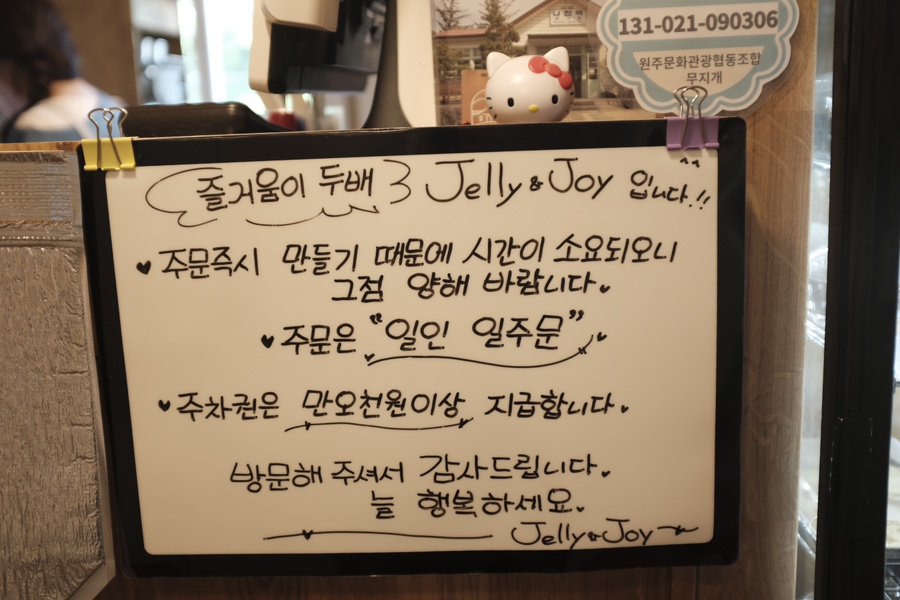 나전역
131-021-090306
원주문화관광협동조합
무지개
즐거움이 두배 Jelly & Joy 입니다.!!
♥ 주문즉시 만들기 때문에 시간이 소요되오니
그점 양해 바랍니다.
♥ 주문은 "일인 일주문"
♥ 주차권은 만오천원이상 지급합니다.
방문해 주셔서 감사드립니다.
늘 행복하세요.
Jelly & Joy